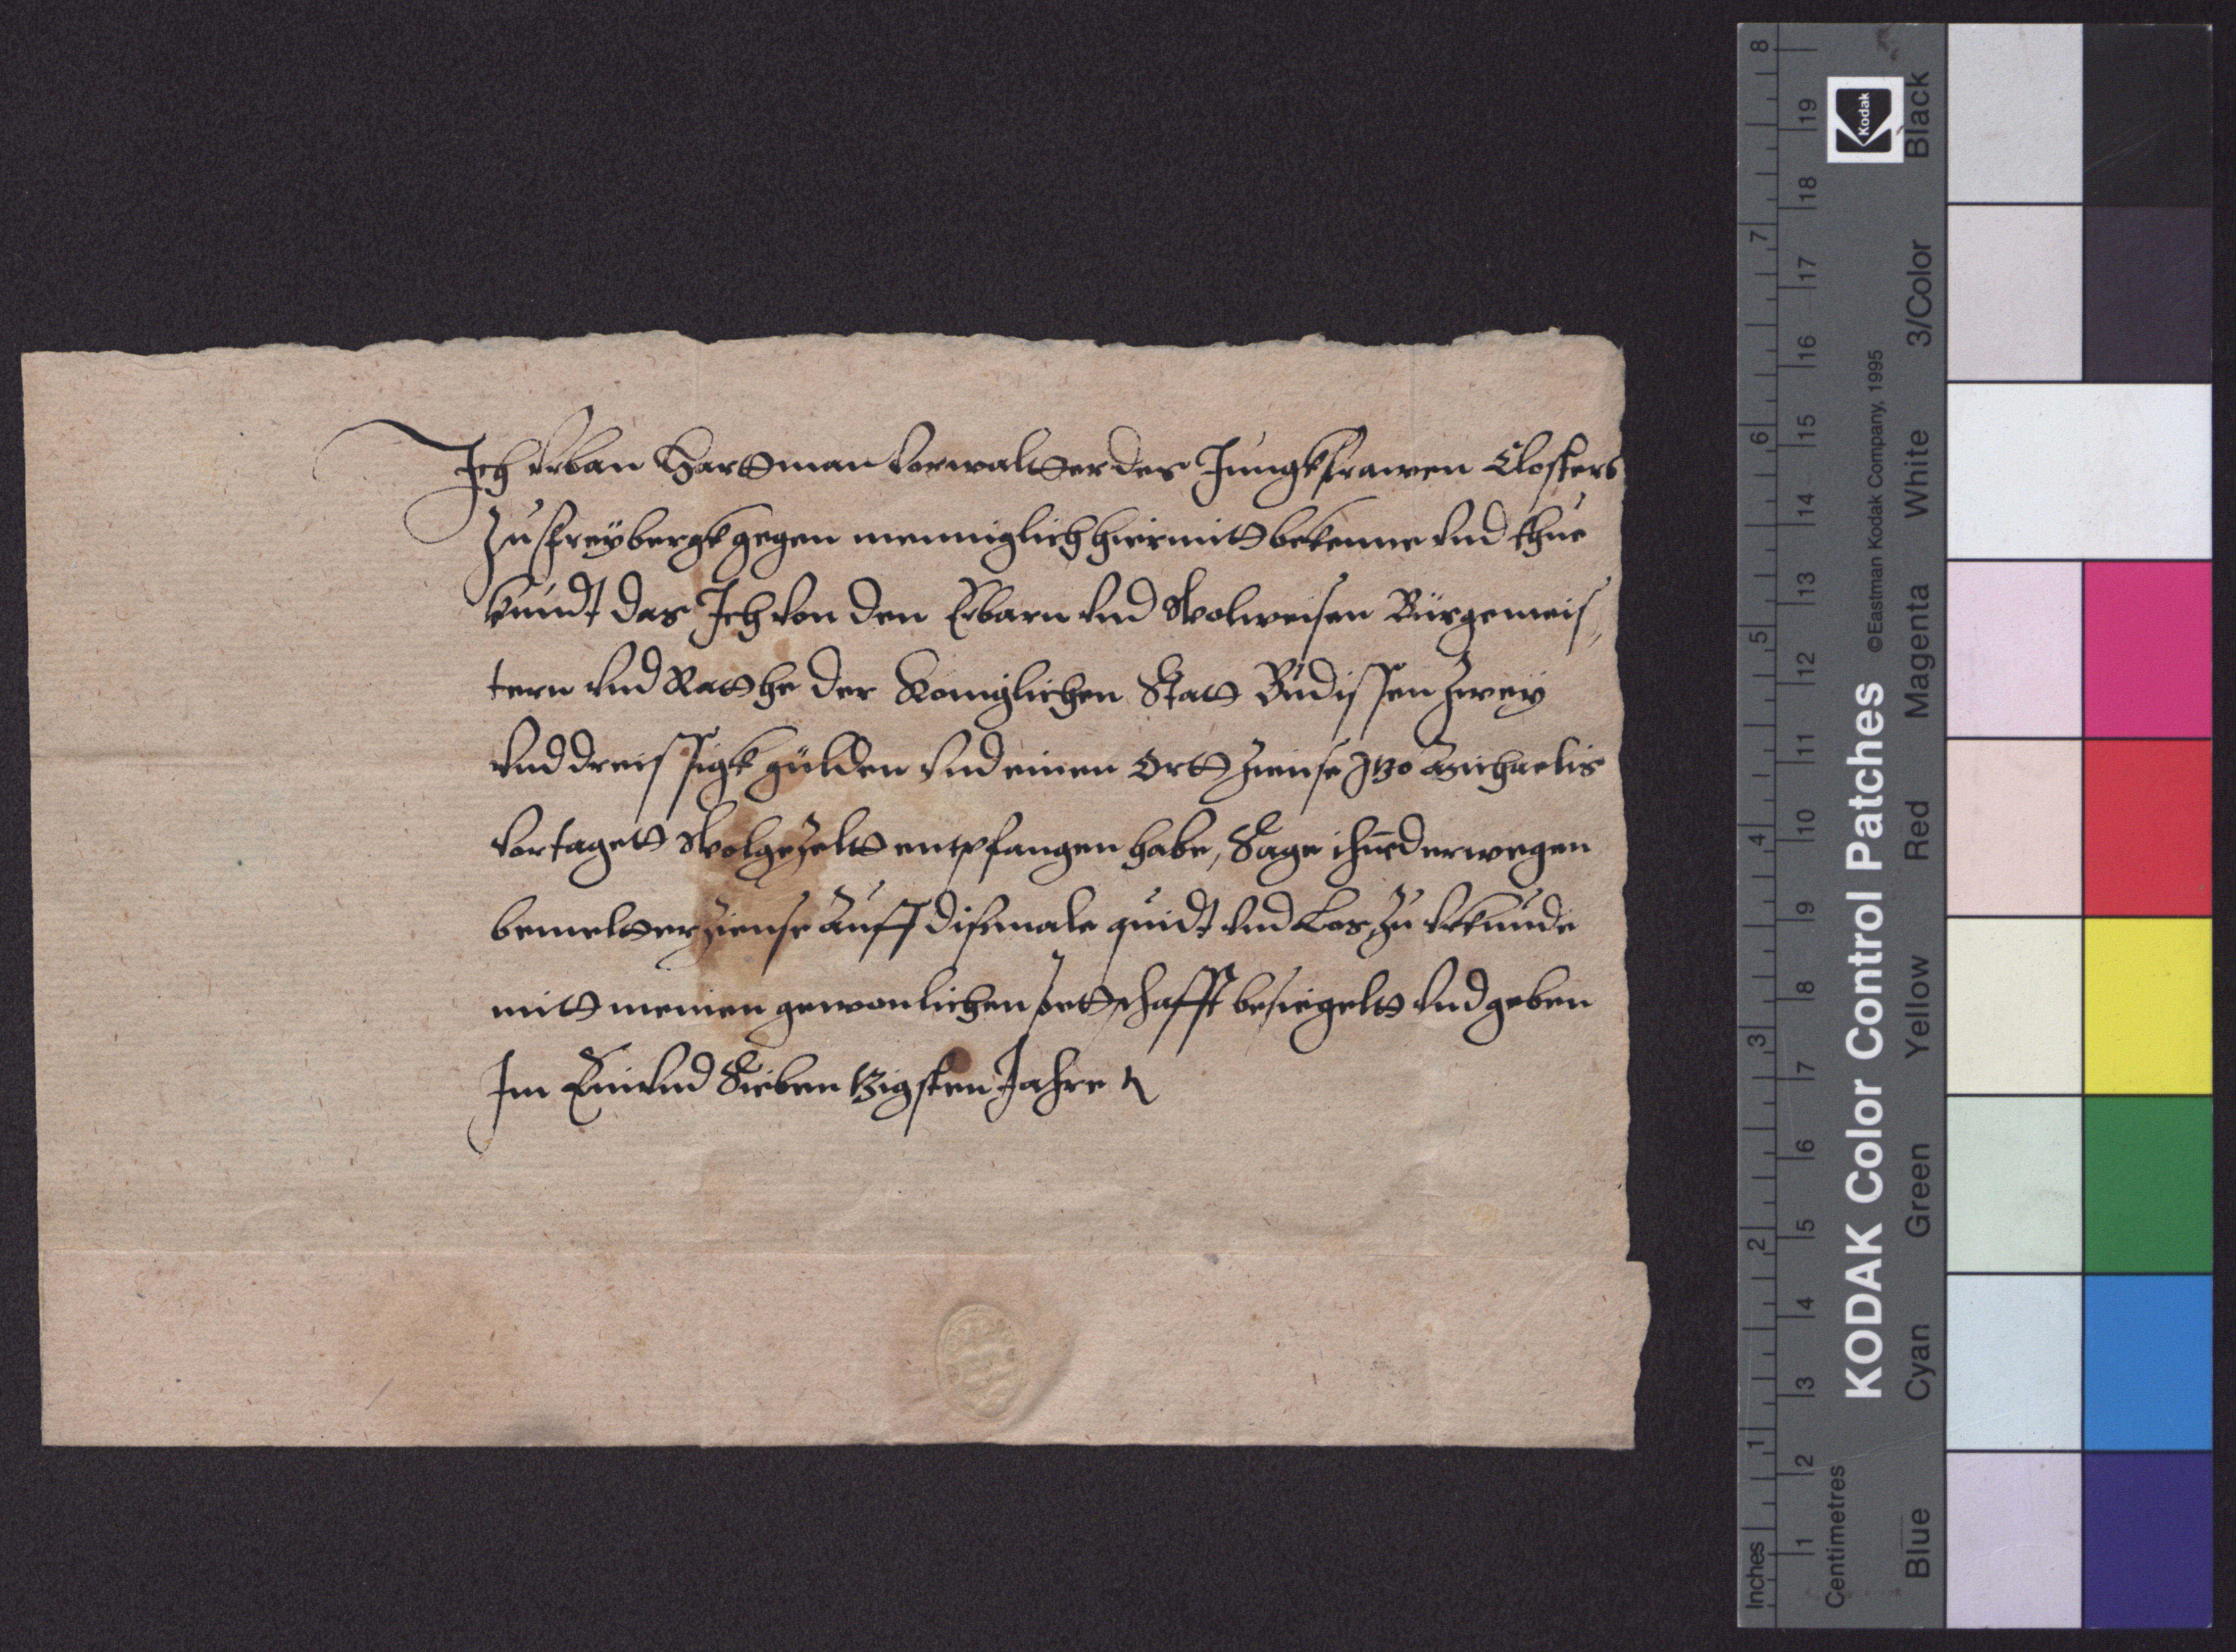 Ich Urban Hartman Vorwaltter des Jungkfrawen Closters
Zu freÿbergk gegen menniglich hiermitt bekenne vnd thue
kundt das Ich von den Erbarn vnd Wolweisen Bürgemeis,
tern vnd Ratthe der Koniglichen Statt Budissen zweÿ
vnd dreissigk gulden vnd einen Ortt ziense Itzo Michaelis
vortagett Wolgezelt entpfangen habe, Sage ihn derwegen
bemeltter ziense auff dismale quidt vnd Los, zu Vrkunde
mitt meinen gewonlichen pettschafft besiegeltt vnd geben
Im Ein vnd Siebentzigsten Jahre
Inches
1 2 3 4 5 6 7 8
Centimetres
1 2 3 4 5 6 7 8 9 10 11 12 13 14 15 16 17 18 19
KODAK Color Control Patches ©Eastman Kodak Company, 1995
Kodak
Blue Cyan Green Yellow Red Magenta White 3/Color Black